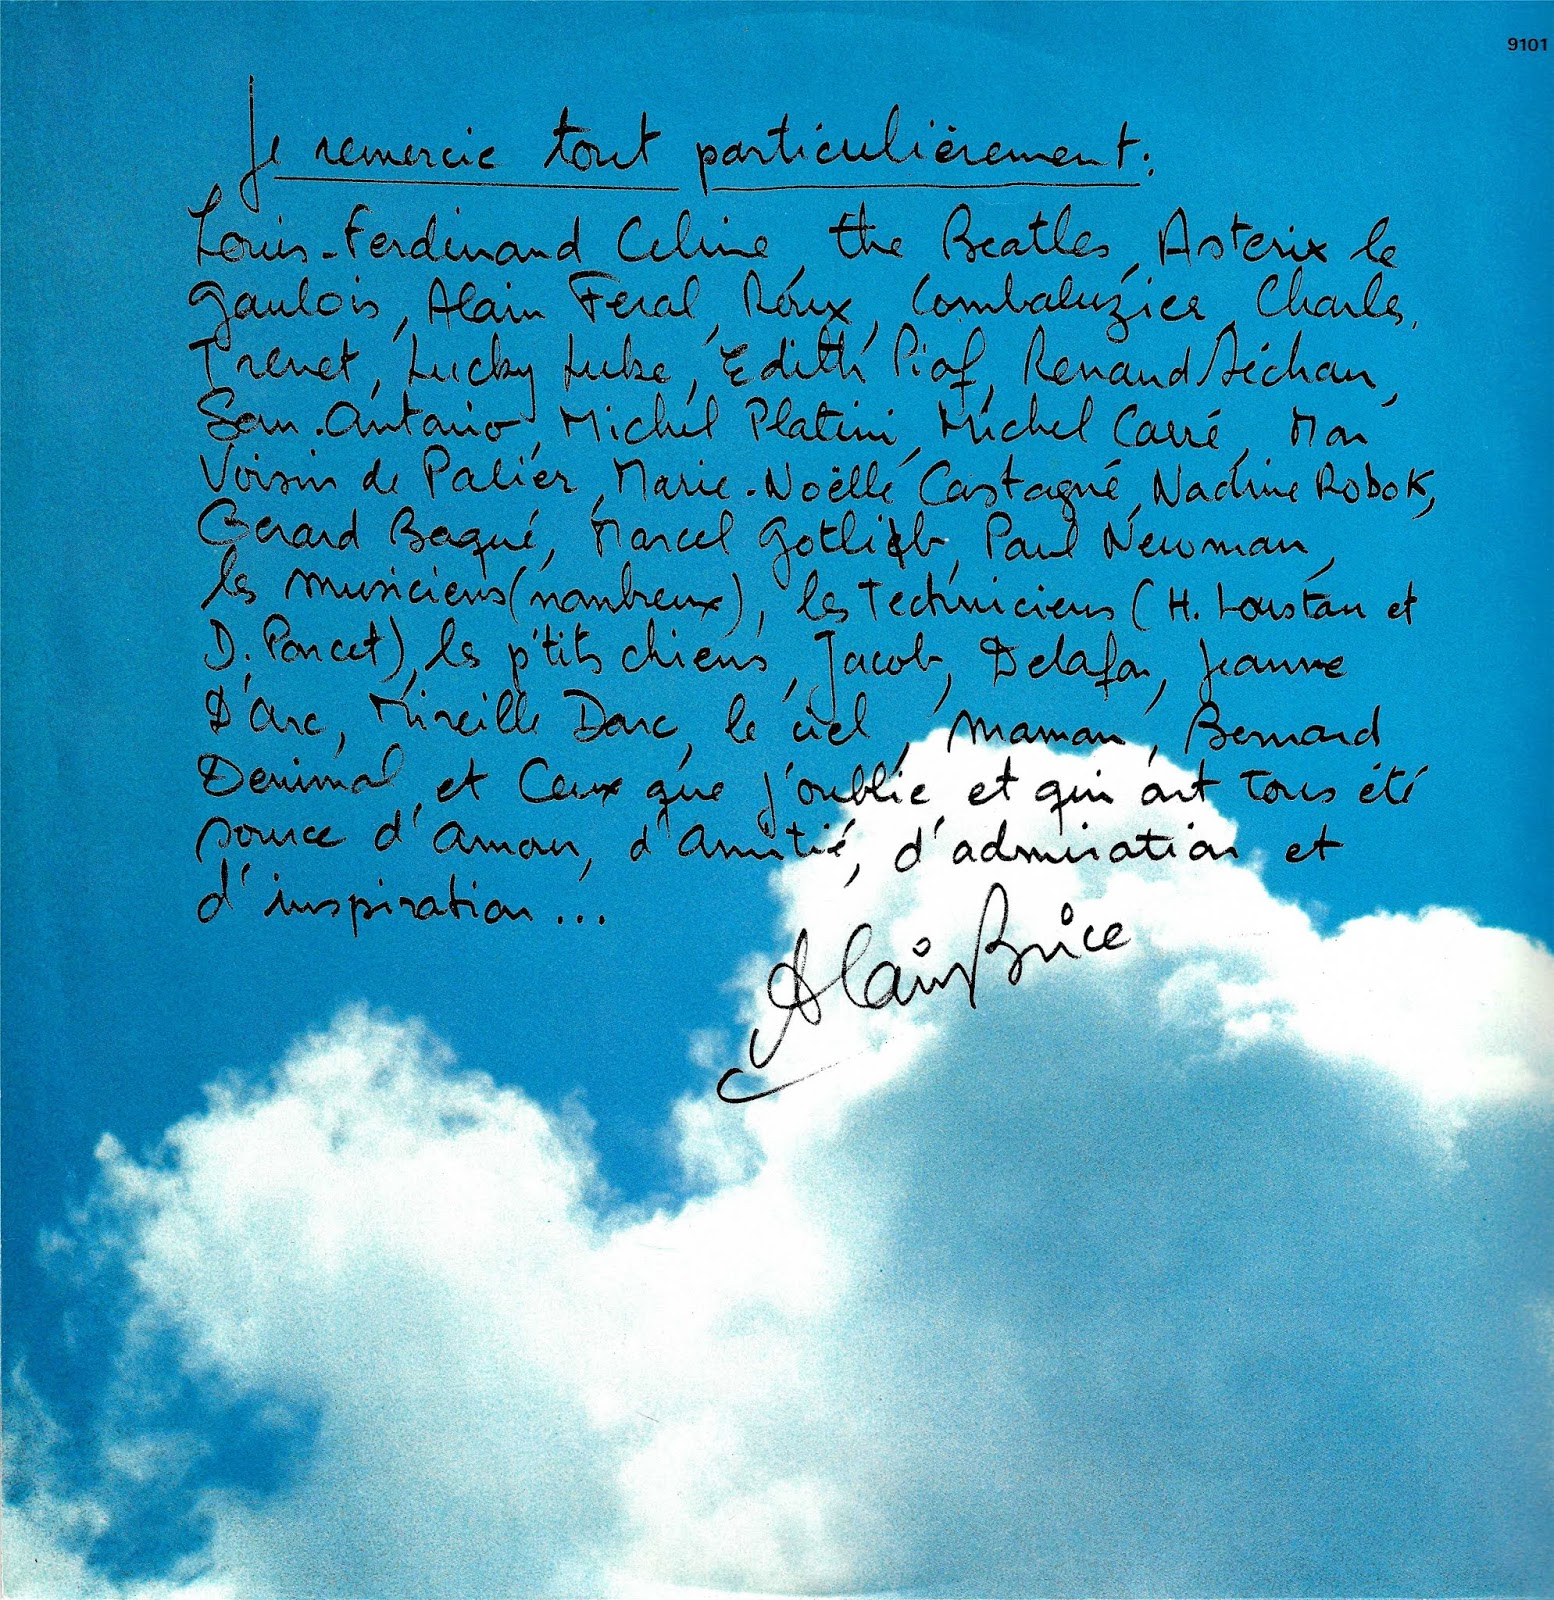 9101
Je remercie tout particulièrement:
Louis-Ferdinand Celine, the Beatles, Asterix le
gaulois, Alain Feral, Roux, Combaluzier, Charles,
Trenet, Lucky Luke, Edith Piaf, Renaud Séchan,
San-Antonio, Michel Platini, Michel Carré, Mon
Voisin de Palier, Marie-Noëlle Castagné, Nadine Robok,
Gerard Baqué, Marcel Gotlieb, Paul Newman,
les musiciens (nombreux), les Techniciens (H. Loustau et
D. Poncet), les p'tits chiens, Jacob, Delafon, Jeanne
D'Arc, Mireille Darc, le ciel, maman, Bernard
Denimal, et Ceux que j'oublie et qui ont Tous été
source d'amour, d'amitié, d'admiration et
d'inspiration...
Alain Brice